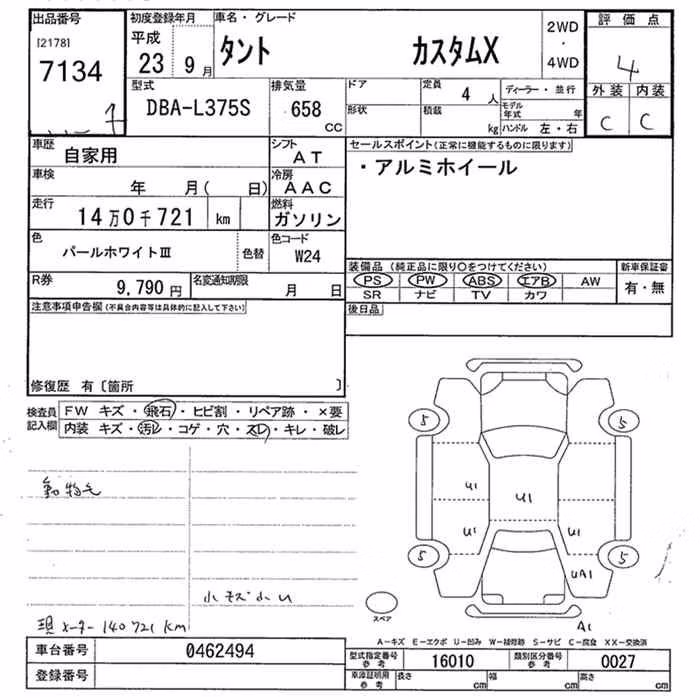 出品番号
[2178]
7134
初度登録年月
平成
23 9月
車名・グレード
タント カスタムX
2WD
・
4WD
評価点
4
外装 内装
C C
型式
DBA-L375S
排気量
658
CC
ドア
形状
定員
4 人
積載
kg
ディーラー・並行
モデル
年式 年
ハンドル 左・右
車歴
自家用
シフト
AT
車検
年 月( 日)
冷房
AAC
走行
14万0千721 km
燃料
ガソリン
色
パールホワイトⅢ
色替
色コード
W24
R券
9,790円
名変通知期限
月 日
セールスポイント(正常に機能するものに限ります)
・アルミホイール
装備品 (純正品に限り〇をつけてください)
PS PW ABS エアB AW
SR ナビ TV カワ
新車保証書
有・無
後日品
注意事項申告欄(不具合内容等は具体的に記入して下さい)
修復歴 有〔箇所 〕
検査員
記入欄
FW キズ・飛石・ヒビ割・リペア跡・×要
内装 キズ・汚レ・コゲ・穴・スレ・キレ・破レ
動物毛
小キズ小U
現メーター 140721km
5 5
U1 U1
U1 U1
5 5
UA1
A1
スペア
A-キズ E-エクボ U-凹み W-補修跡 S-サビ C-腐食 XX-交換済
車台番号 0462494
登録番号
型式指定番号
参考
16010
類別区分番号
参考
0027
車庫証明用
参考
長さ cm 幅 cm 高さ cm